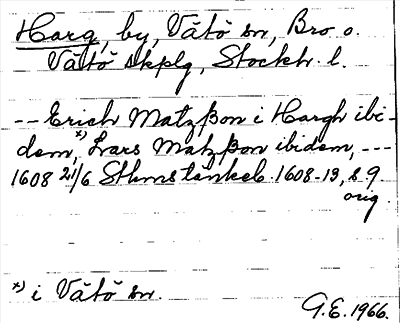 Harg, by, Vätö sn, Bro o.
Vätö skplg, Stockh. l.
-- Erich Matzßon i Hargh ibi-
dem,*) Lars Matzßon ibidem, ---
1608 21/6 Sthms tänkeb. 1608-13, s. 9
orig.
*) i Vätö sn.
G.E. 1966.